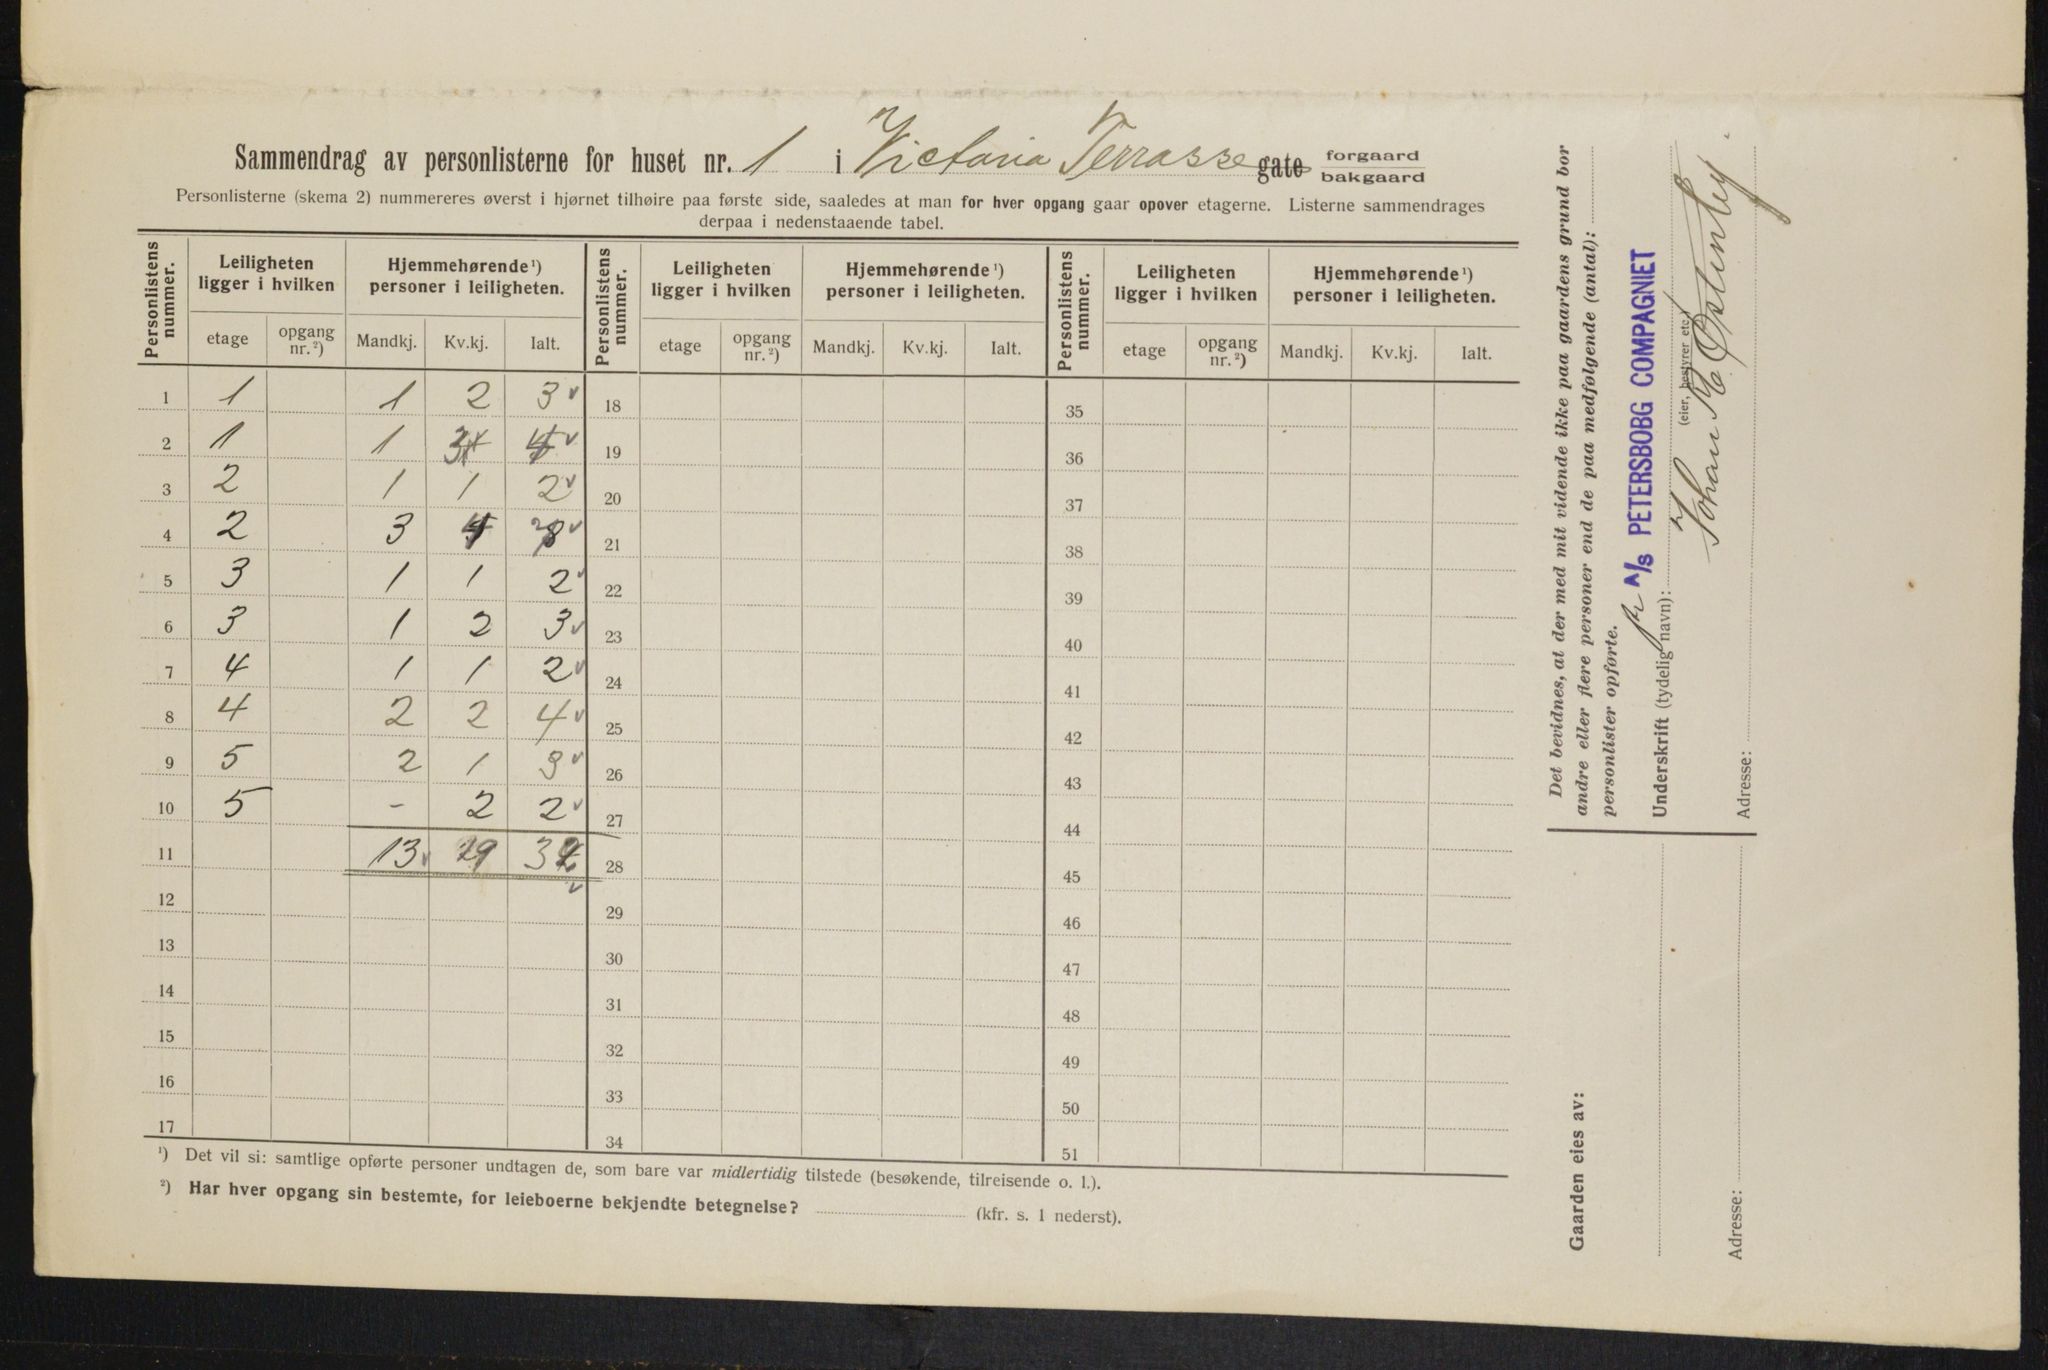 Sammendrag av personlisterne for huset nr. 1 i Victoria Terrasse gate forgaard bakgaard
Personlisterne (skema 2) nummereres øverst i hjørnet tilhøire paa første side, saaledes at man for hver opgang gaar opover etagerne. Listerne sammendrages
derpaa i nedenstaaende tabel.
Personlistens nummer. Leiligheten ligger i hvilken Hjemmehørende ¹) personer i leiligheten. Personlistens nummer. Leiligheten ligger i hvilken Hjemmehørende ¹) personer i leiligheten. Personlistens nummer. Leiligheten ligger i hvilken Hjemmehørende ¹) personer i leiligheten.
etage opgang nr. ²) Mandkj. Kv.kj. Ialt. etage opgang nr. ²) Mandkj. Kv.kj. Ialt. etage opgang nr. ²) Mandkj. Kv.kj. Ialt.
1 1 1 2 3 18 35
2 1 1 3 4 19 36
3 2 1 1 2 20 37
4 2 3 4 7 21 38
5 3 1 1 2 22 39
6 3 1 2 3 23 40
7 4 1 1 2 24 41
8 4 2 2 4 25 42
9 5 2 1 3 26 43
10 5 - 2 2 27 44
11 13 19 32 28 45
12 29 46
13 30 47
14 31 48
15 32 49
16 33 50
17 34 51
¹) Det vil si: samtlige opførte personer undtagen de, som bare var midlertidig tilstede (besøkende, tilreisende o. l.).
²) Har hver opgang sin bestemte, for leieboerne bekjendte betegnelse? (kfr. s. 1 nederst).
Det bevidnes, at der med mit vidende ikke paa gaardens grund bor
andre eller flere personer end de paa medfølgende (antal):
personlister opførte.
A/S PETERSBOBG COMPAGNIET
Underskrift (tydelig navn):
(eier, bestyrer etc.)
Johan
Adresse:
Gaarden eies av:
Adresse: